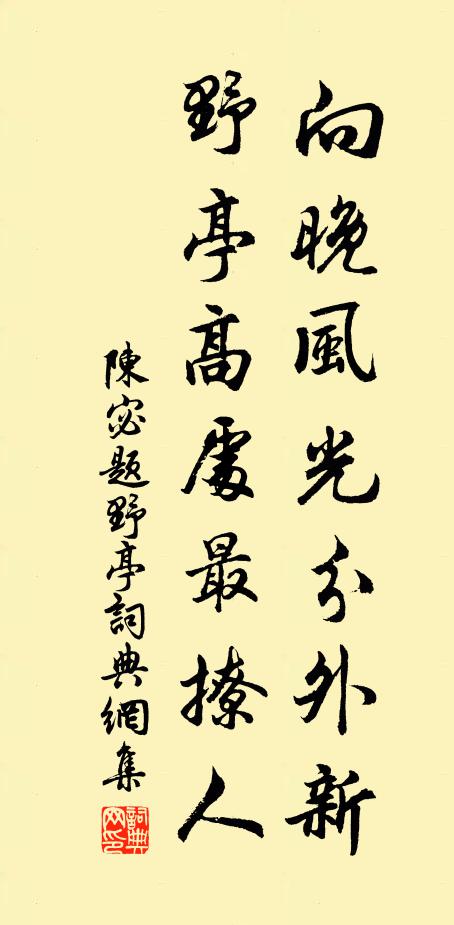 向晚風光分外新
野亭高處最撩人
陳宓題野亭詞典網集
詞典网印